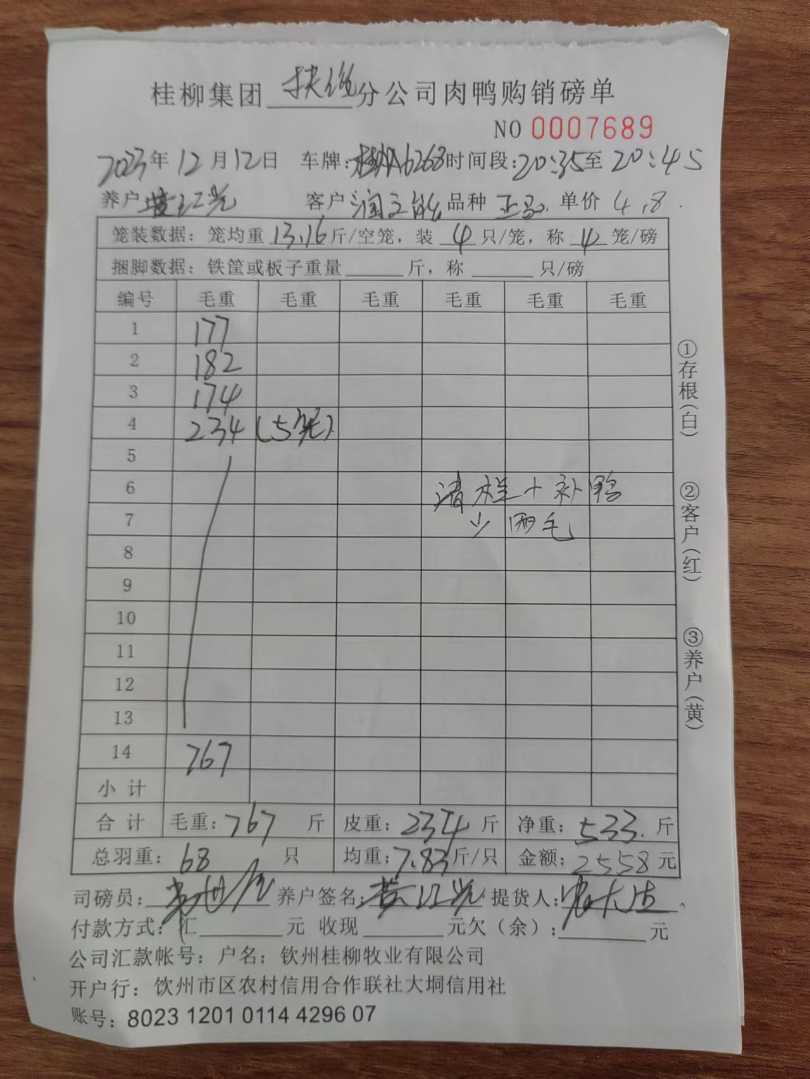 桂柳集团 扶绥 分公司肉鸭购销磅单
NO 0007689
2023年12月12日 车牌: 6268 时间段:20:35至20:45
养户 黄江光 客户 品种 单价 4.8
笼装数据: 笼均重 13.16 斤/空笼, 装 4 只/笼, 称 4 笼/磅
捆脚数据: 铁筐或板子重量 斤, 称 只/磅
编号 毛重 毛重 毛重 毛重 毛重 毛重
1 177
2 182
3 174
4 234 (5笼)
5
6 清栏+补鸭
7 少两毛
8
9
10
11
12
13
14 767
小计
合计 毛重: 767 斤 皮重: 234 斤 净重: 533 斤
总羽重: 68 只 均重: 7.83 斤/只 金额: 2558 元
司磅员: 养户签名: 黄江光 提货人:
付款方式: 汇 元 收现 元欠(余): 元
公司汇款帐号: 户名: 钦州桂柳牧业有限公司
开户行: 钦州市区农村信用合作联社大垌信用社
账号: 8023 1201 0114 4296 07
①存根(白)
②客户(红)
③养户(黄)